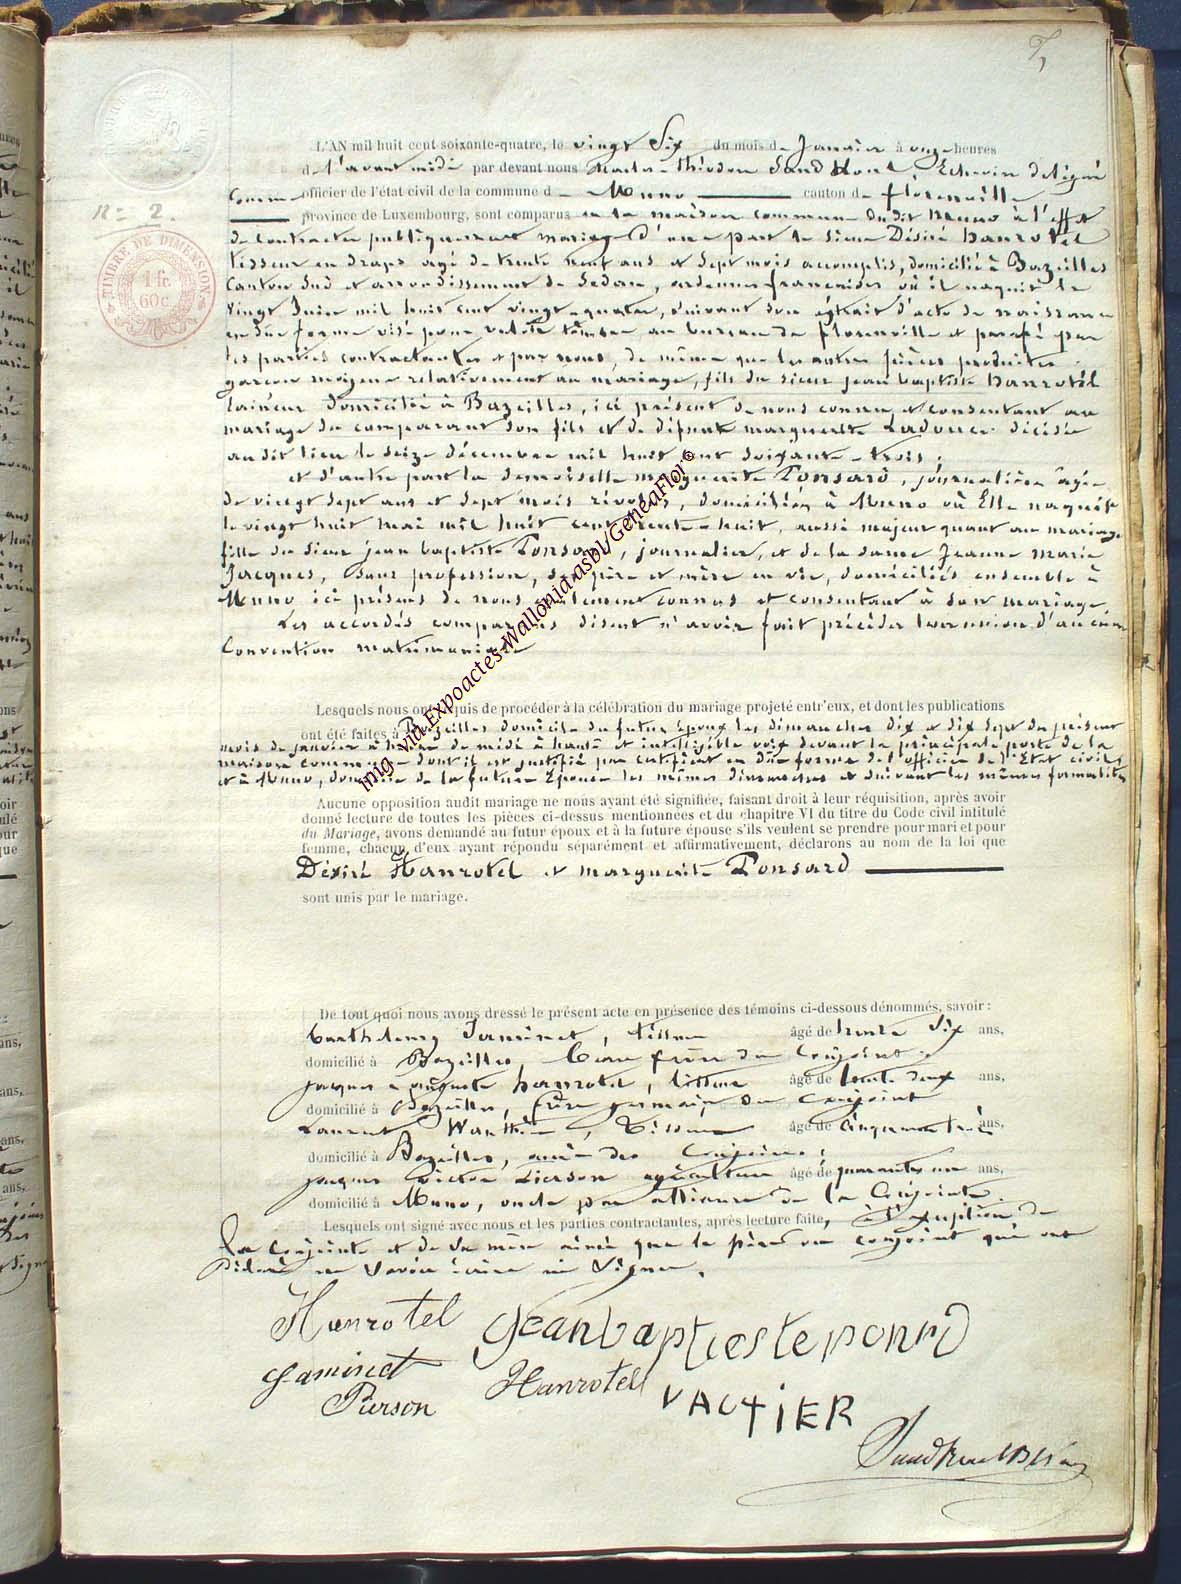 7
N° 2.
TIMBRE DE DIMENSION
1 fr.
60 c.
L'AN mil huit cent soixante-quatre, le vingt Six du mois de Janvier à onze heures
de l'avant midi par devant nous Théodore Echevin délégué
comme officier de l'état civil de la commune de Muno canton de florenville
province de Luxembourg, sont comparus en la maison commune dudit Muno à l'effet
de contracter publiquement mariage d'une part le sieur Désiré hanrotel
tisseur en draps agé de trente neuf ans et Sept mois accomplis, domicilié à Bazeilles
Canton Sud et arrondissement de Sedan, ardennes françaises où il naquit le
vingt Juin mil huit cent vingt-quatre, suivant son extrait d'acte de naissance
en due forme visé pour valoir timbre au bureau de florenville et parafé par
les parties contractantes et par nous, de même que les autres pièces produites
garçon majeur relativement au mariage, fils du sieur jean baptiste hanrotel
laineur domicilié à Bazeilles, ici présent de nous connu et consentant au
mariage du comparant son fils et de défunte marguerite Ladouce décédée
au dit lieu le seize décembre mil huit cent soixante-trois.
et d'autre part la demoiselle marguerite Ponsard, journalière âgée
de vingt sept ans et sept mois révolus, domiciliée à Muno où Elle naquit
le vingt huit mai mil huit cent trente-huit, aussi majeur quant au mariage
fille du sieur jean baptiste Ponsard, journalier, et de la dame Jeanne Marie
Jacques, sans profession, ses père et mère en vie, domiciliés ensemble à
Muno ici présens de nous également connus et consentant à son mariage.
Les accordés comparants disent n'avoir fait précéder leur union d'aucune
Convention matrimoniale
Lesquels nous ont requis de procéder à la célébration du mariage projeté entr'eux, et dont les publications
ont été faites à Bazeilles domicile du futur époux les dimanches dix et dix sept du présent
mois de janvier à heure de midi à haute et intelligible voix devant la principale porte de la
maison commune dont il est justifié par certificat en due forme de l'officier de l'état civil,
et à Muno, domicile de la future épouse les mêmes dimanches et suivant les mêmes formalités
Aucune opposition audit mariage ne nous ayant été signifiée, faisant droit à leur réquisition, après avoir
donné lecture de toutes les pièces ci-dessus mentionnées et du chapitre VI du titre du Code civil intitulé
du Mariage, avons demandé au futur époux et à la future épouse s'ils veulent se prendre pour mari et pour
femme, chacun d'eux ayant répondu séparément et affirmativement, déclarons au nom de la loi que
Désiré Hanrotel et marguerite Ponsard
sont unis par le mariage.
De tout quoi nous avons dressé le présent acte en présence des témoins ci-dessous dénommés, savoir :
Barthélemy Jaminet, tisseur âgé de trente Six ans,
domicilié à Bazeilles, beau frère du Conjoint.
jacques auguste hanrotel, tisseur âgé de trente deux ans,
domicilié à Bazeilles, frère germain du Conjoint
Laurent tisseur âgé de cinquante trois ans,
domicilié à Bazeilles, ami des Conjoints,
jacques Victor Pierson agriculteur âgé de quarante un ans,
domicilié à Muno, oncle par alliance de la Conjointe.
Lesquels ont signé avec nous et les parties contractantes, après lecture faite, à l'exeption de
La Conjointe et de Sa mère ainsi que le père du conjoint qui ont
déclaré ne Savoir écrire ni Signer.
Hanrotel
Jeanbaptiesteponsrd
Jaminet
Hanrotel
Pierson
VAUTIER
img via Expoactes-Wallonia-asbl/GeneaFloi©